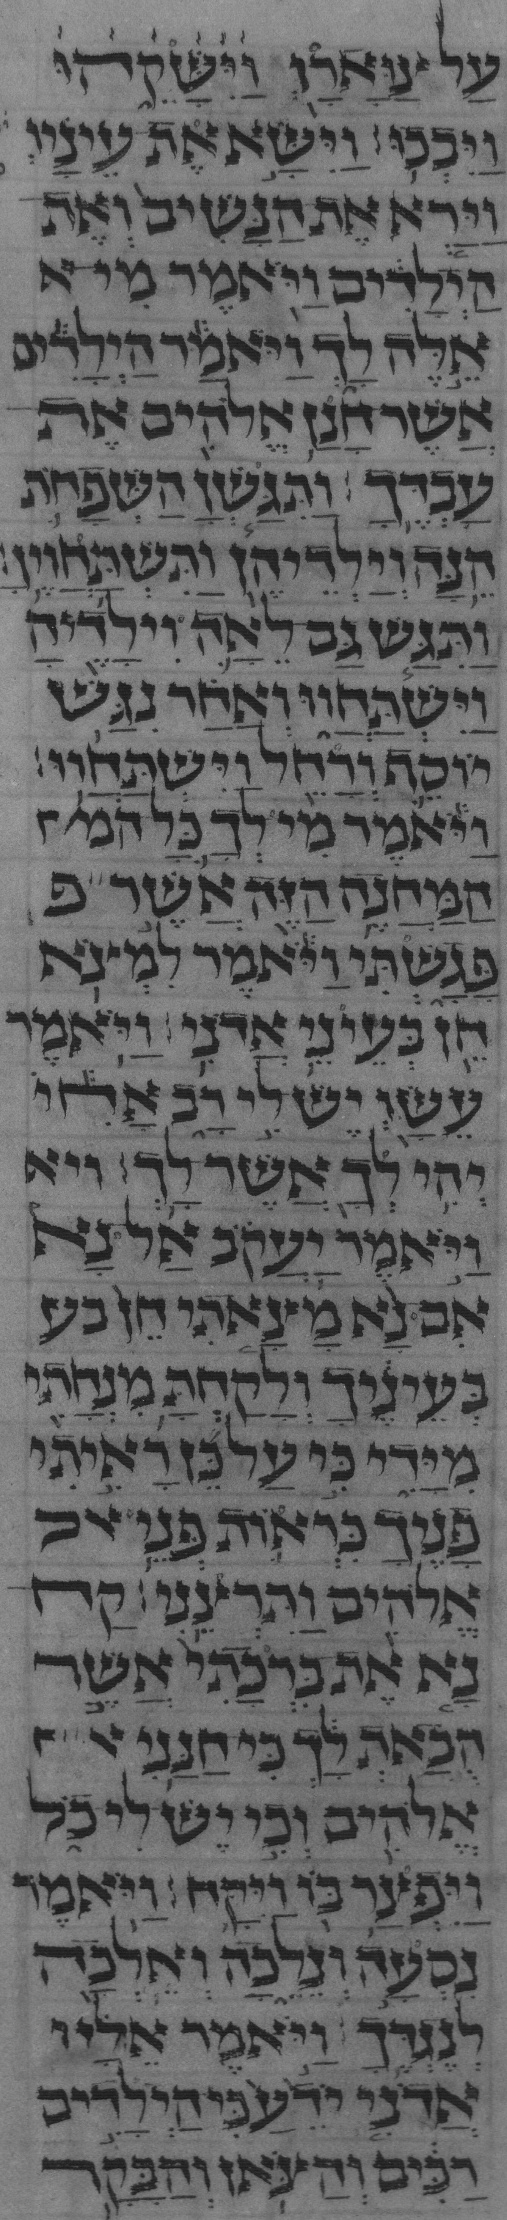 עַל־צַוָּארָו וַיִּשָּׁקֵהוּ
וַיִּבְכּוּ׃ וַיִּשָּׂא אֶת עֵינָיו
וַיַּרְא אֶת הַנָּשִׁים וְאֶת
הַיְלָדִים וַיֹּאמֶר מִי א
אֵלֶּה לָּךְ וַיֹּאמַר הַיְלָדִים
אֲשֶׁר חָנַן אֱלֹהִים אֶת
עַבְדֶּךָ׃ וַתִּגַּשְׁןָ הַשְּׁפָחֹת
הֵנָּה וְיַלְדֵיהֶן וַתִּשְׁתַּחֲוֶיןָ׃
וַתִּגַּשׁ גַּם לֵאָה וִילָדֶיהָ
וַיִּשְׁתַּחֲווּ וְאַחַר נִגַּשׁ
יוֹסֵף וְרָחֵל וַיִּשְׁתַּחֲווּ׃
וַיֹּאמֶר מִי לְךָ כָּל הַמ
הַמַּחֲנֶה הַזֶּה אֲשֶׁר פ
פָּגָשְׁתִּי וַיֹּאמֶר לִמְצֹא
חֵן בְּעֵינֵי אֲדֹנִי׃ וַיֹּאמֶר
עֵשָׂו יֶשׁ לִי רָב אָחִי
יְהִי לְךָ אֲשֶׁר לָךְ׃ ויא
וַיֹּאמֶר יַעֲקֹב אַל נָא
אִם נָא מָצָאתִי חֵן בע
בְּעֵינֶיךָ וְלָקַחְתָּ מִנְחָתִי
מִיָּדִי כִּי עַל כֵּן רָאִיתִי
פָנֶיךָ כִּרְאֹות פְּנֵי אל
אֱלֹהִים וַתִּרְצֵנִי׃ קַח
נָא אֶת בִּרְכָתִי אֲשֶׁר
הֻבָאת לָךְ כִּי חַנַּנִי א
אֱלֹהִים וְכִי יֶשׁ לִי כֹל
וַיִּפְצַר בּוֹ וַיִּקָּח׃ וַיֹּאמֶר
נִסְעָה וְנֵלֵכָה וְאֵלְכָה
לְנֶגְדֶּךָ׃ וַיֹּאמֶר אֵלָיו
אֲדֹנִי יֹדֵעַ כִּי הַיְלָדִים
רַכִּים וְהַצֹּאן וְהַבָּקָר